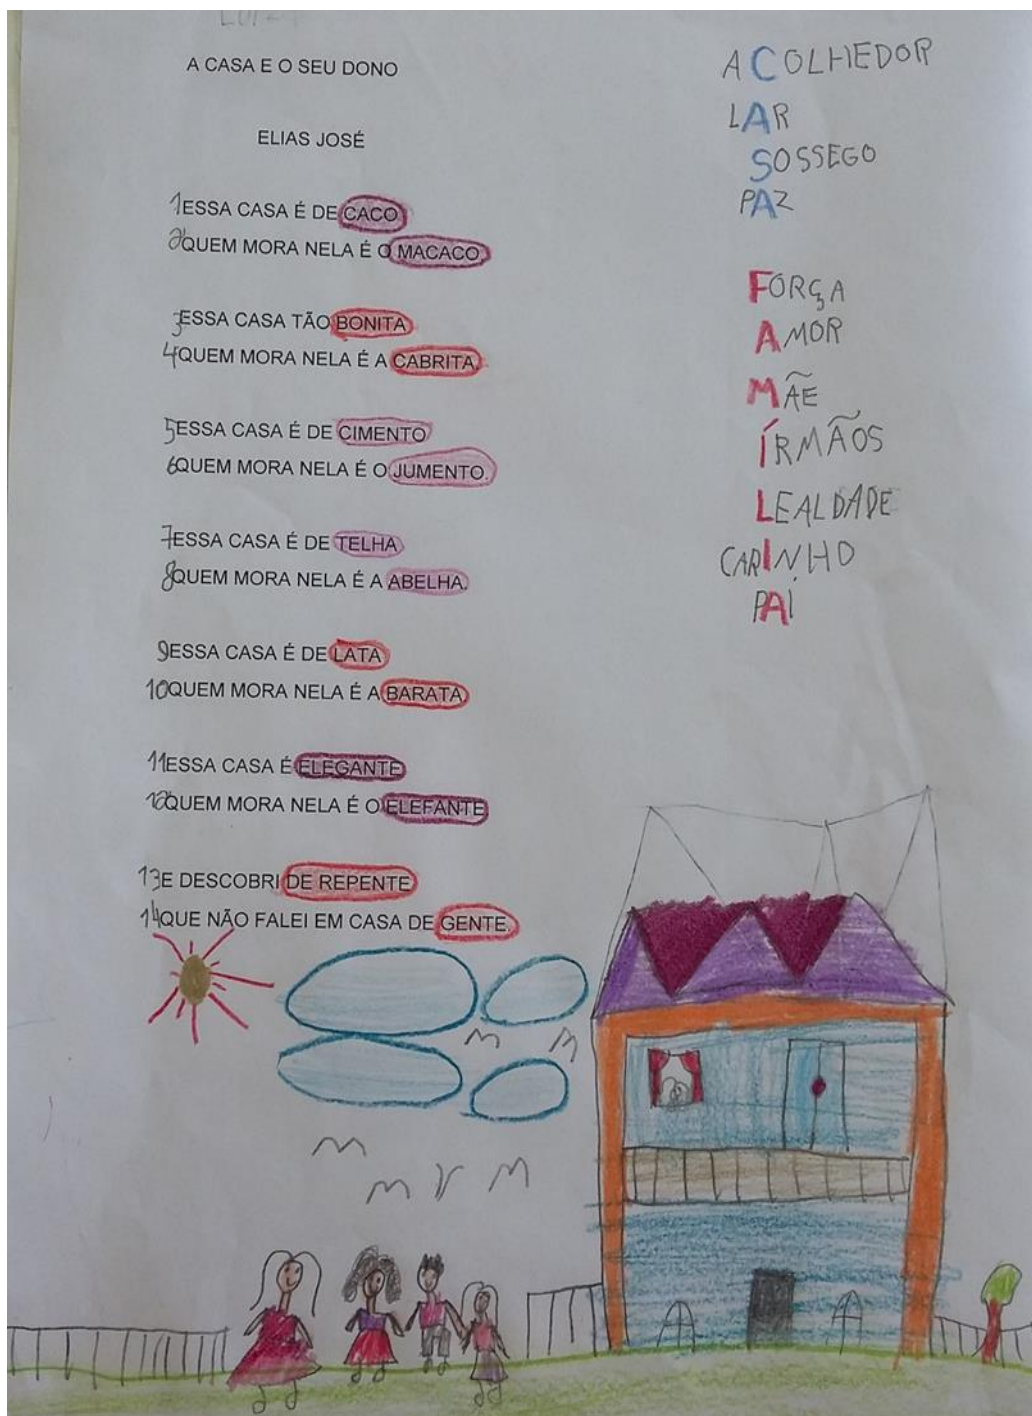 A CASA E O SEU DONO
ELIAS JOSÉ
1ESSA CASA É DE CACO
2QUEM MORA NELA É O MACACO.
3ESSA CASA TÃO BONITA
4QUEM MORA NELA É A CABRITA.
5ESSA CASA É DE CIMENTO
6QUEM MORA NELA É O JUMENTO.
7ESSA CASA É DE TELHA
8QUEM MORA NELA É A ABELHA.
9ESSA CASA É DE LATA
10QUEM MORA NELA É A BARATA.
11ESSA CASA É ELEGANTE
12QUEM MORA NELA É O ELEFANTE.
13E DESCOBRI DE REPENTE
14QUE NÃO FALEI EM CASA DE GENTE.
ACOLHEDOR
LAR
SOSSEGO
PAZ
FORÇA
AMOR
MÃE
ÍRMÃOS
LEALDADE
CARINHO
PAI